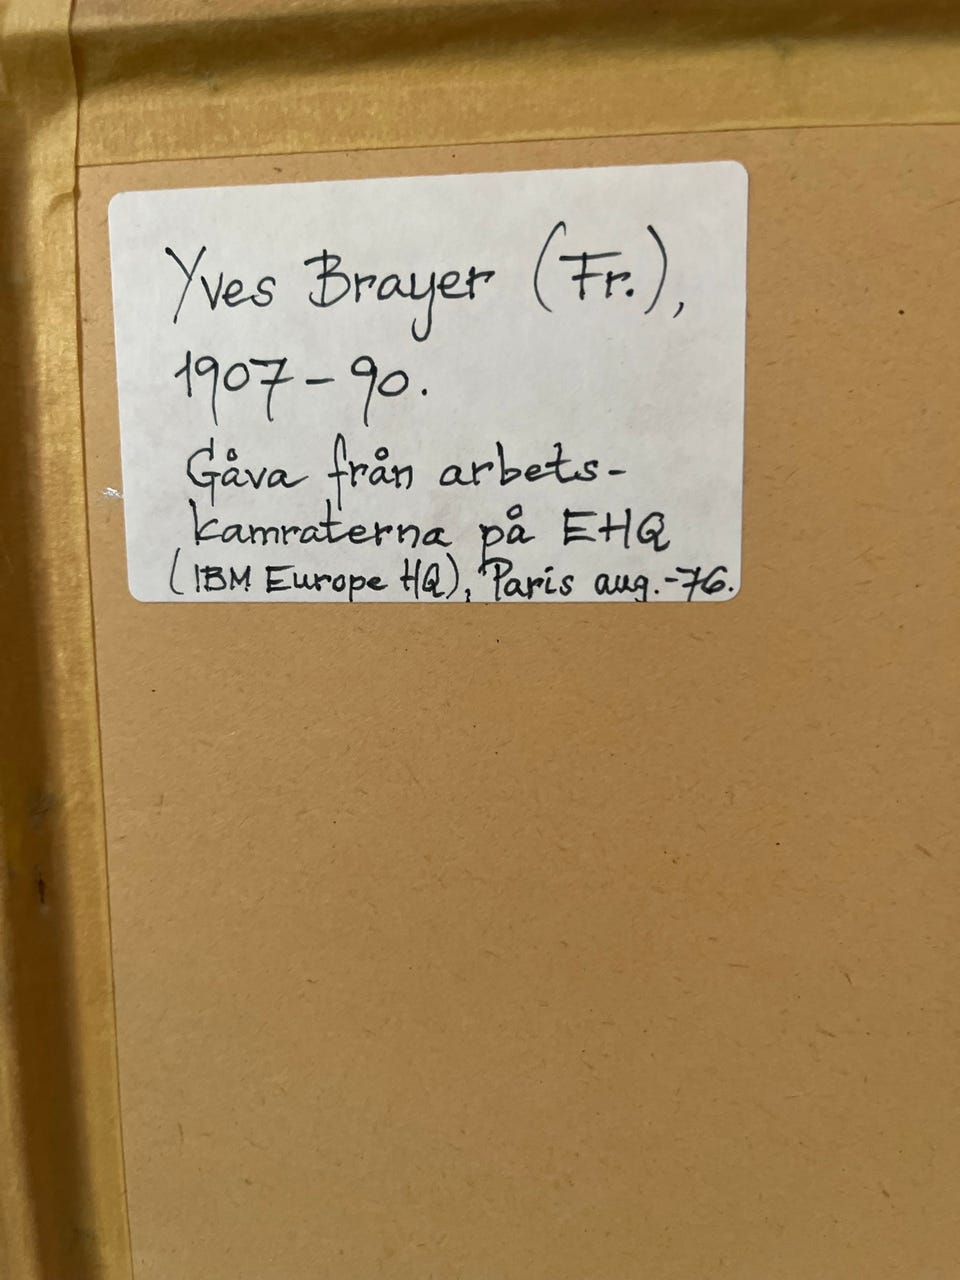 Yves Brayer (Fr.),
1907-90.
Gåva från arbets-
kamraterna på EHQ
(IBM Europe HQ), Paris aug.-76.